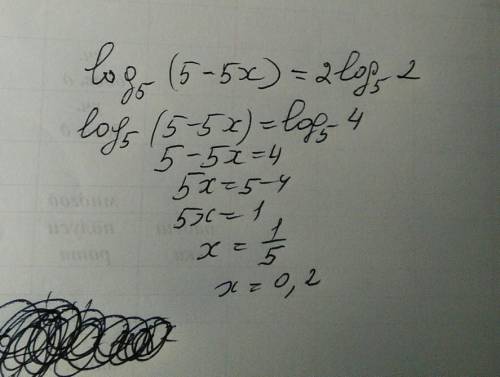 log₅ (5-5x) = 2log₅ 2
log₅ (5-5x) = log₅ 4
5-5x=4
5x=5-4
5x=1
x = 1/5
x = 0,2